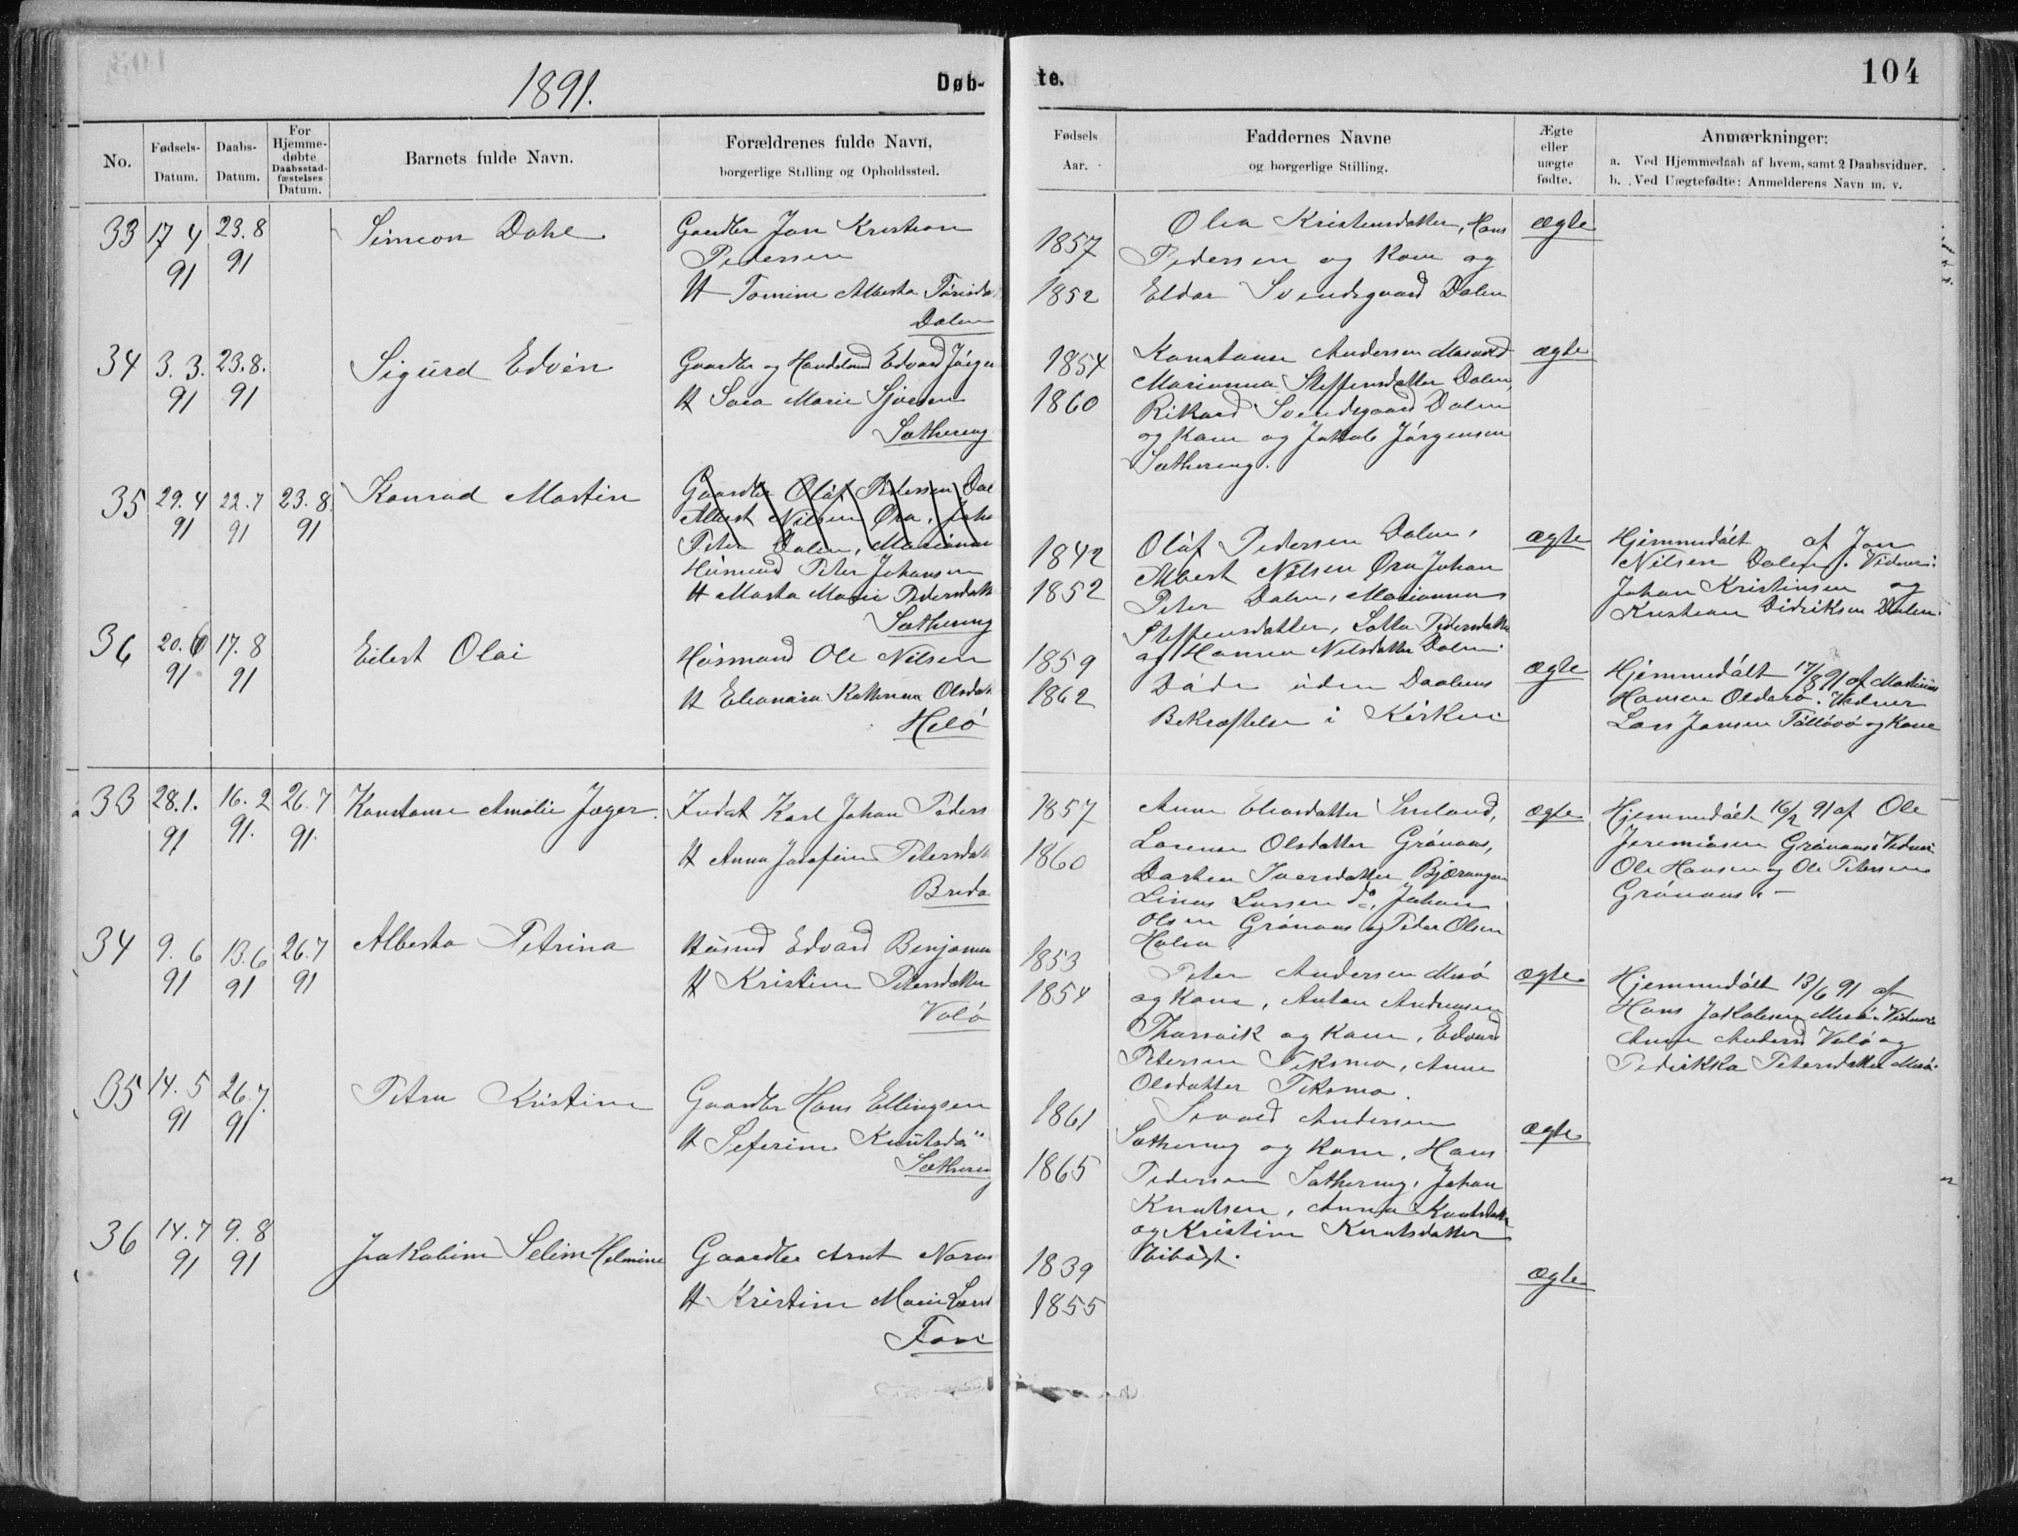 1891.
Døb-
No.
Fødsels-
Datum.
Daabs-
Datum.
For
Hjemme-
døbte
Daabsstad-
fæstelses
Datum.
Barnets fulde Navn.
Forældrenes fulde Navn,
borgerlige Stilling og Opholdssted.
33 17 4 23.8 Simeon Dahl Gaardbr Jon Kristian
91 91 Pedersen
H Tomine Alberta
Dalen
34 3.3. 23.8. Sigurd Edvin Gaardbr og Edvard Jørgen
91 91 H Sara Marie
Sæthereng
35 29.4 22.7 23.8. Konrad Martin Gaardbr Olaf Pedersen Dal
91 91 91 Albert Nilsen Øra, Joha
Peter Dalen, Marianna
Husmand Peter Johansen
H Marta Marie Pedersdatt
Sæthereng
36 20.6 17.8 Eilert Olai Husmand Ole Nilsen
91. 91 H Eleonora Katrina Olsdat
Helø
33 28.1. 16.2 26.7 Konstanse Amalie Jæger. Inderst Karl Johan Peders
91 91. 91. H Anna Josefine Petersdatt
Breda
34 9.6 13.6 26.7 Alberta Petrina Husmd Edvard Benjamin
91 91 91 H Kristine Petersdatter
Valø
35 14.5 26.7. Petra Kristine Gaardbr Hans Ellingsen
91 91 H Seferine Knutsda"
Sæthereng
36 14.7 9.8 Jakobine Seline Helmine Gaardbr Arnt
91 91 H Kristine Marie
104
te.
Fødsels
Aar.
Faddernes Navne
og borgerlige Stilling.
Ægte
eller
uægte
fødte.
Anmærkninger:
a. Ved Hjemmedaab af hvem, samt 2 Daabsvidner.
b. Ved Uægtefødte: Anmelderens Navn m. v.
1857 Olea Kristensdatter, Hans ægte
Pedersen og Kone og
1852 Eldar Svendsgaard Dalen
1854 Konstanse Andersen ægte
Marianna Steffensdatter Dalen,
1860 Rikard Svendsgaard Dalen
og Kone og Jakob Jørgensen
Sæthereng.
1842 Olaf Pedersen Dalen, ægte Hjemmedøbt af Jon
Albert Nilsen Øra Johan Nilsen Dalen. Vidner:
1852 Peter Dalen, Marianna Johan Kristensen og
Steffensdatter, Lotta Pedersdatter Kristian Didriksen Dalen.
1859 og Hanna Nilsdatter Dalen.
Døde uden Daabens ægte Hjemmedøbt 17/8 91 af Martinus
1862 Bekræftelse i Kirken Hansen Olderø. Vidner
Lars Jansen og Kone
1857 Anne Eliasdatter ægte Hjemmedøbt 16/2 91 af Ole
1860 Lorense Olsdatter Grønaas, Jeremiasen Grønaas. Vidner
Iversdatter Bjærangen Ole Hansen og Ole Petersen
Linus Larsen do, Johan Grønaas. -
Olsen Grønaas og Peter Olsen
1853 Peter Andersen Mesø ægte Hjemmedøbt 13/6 91 af
1854 og Kone, Anton Andreasen Hans Jakobsen Mesø. Vidner:
Thorsvik og Kone, Edvard Anne Valø og
Petersen Teksmo, Anne Fredrikka Petersdatter Mesø.
Olsdatter Teksmo.
1861 Sivald Andersen ægte
Sæthereng og Kone, Hans
1865 Pedersen Sæthereng, Johan
Knutsen, Anna Knutsdatter
og Kristine Knutsdatter
1839 ægte
1855